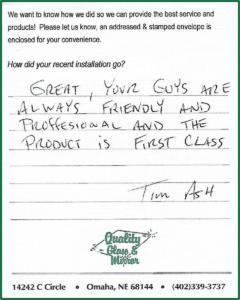 We want to know how we did so we can provide the best service and
products! Please let us know, an addressed & stamped envelope is
enclosed for your convenience.
How did your recent installation go?
GREAT, YOUR GUYS ARE
ALWAYS FRIENDLY AND
PROFFESIONAL AND THE
PRODUCT IS FIRST CLASS
Tim Ash
Quality
Glass &
Mirror
14242 C Circle • Omaha, NE 68144 • (402)339-3737